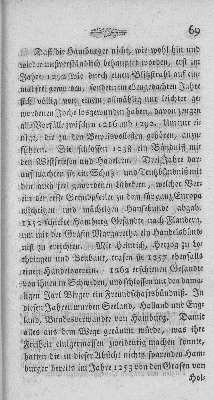 69
Daß die Hamburger nicht, wie wohl hin und
wieder unverständlich behauptet worden, erst im
Jahre 1292 wie durch einen Blitzstrahl auf ein-
mal frey geworden, sondern im ebengedachten Jahre
sich völlig von einem allmählig nur leichter ge-
wordenen Joche losgewunden haben, davon zeugen
alle Vorfälle zwischen 1216 und 1292. Um nur ei-
nige, die zu den Beweisvollesten gehören, anzu-
führen. Sie schlossen 1238 ein Bündniß mit
den Westfriesen und Hadelern. Drei Jahre dar-
auf schlossen sie ein Schutz- und Trutzbündniß mit
den auch frey gewordenen Lübekern, welcher Ver-
ein der erste Grundpfeiler zu dem für ganz Europa
wichtigen und mächtigen Hansebunde abgab.
1252 schickte Hamburg Gesandte nach Flandern,
um mit der Gräfin Margaretha ein Handelsbünd-
niß zu errichten. Mit Heinrich, Herzog zu Lo-
thringen und Brabant, trafen sie 1257 ebenfalls
einen Handelsverein. 1262 erschienen Gesandte
von ihnen in Schweden, und schlossen mit dem dama-
ligen Jarl Birger ein Freundschaftsbündniß. In
diesen Jahren wurden Seeland, Holland und Eng-
land, Bundesverwandte von Hamburg. Damit
alles aus dem Wege geräumt würde, was ihre
Freiheit einigermassen zweydeutig machen konnte,
hatten die in dieser Absicht nichts sparenden Ham-
burger bereits im Jahre 1253 von den Grafen von
Hol-